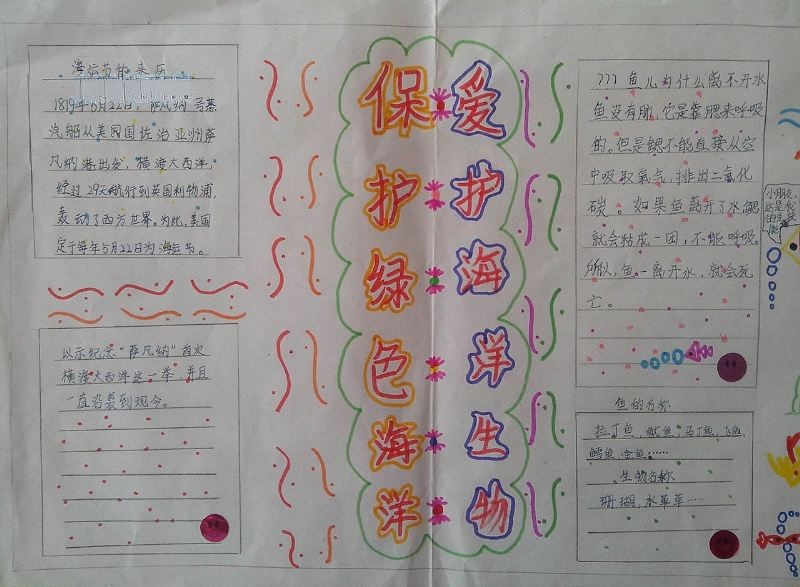 海运节的来历
1819年5月22日，萨凡纳号蒸
汽船从美国国佐治亚洲萨
凡纳港出发，横渡大西洋，
经过29天航行到英国利物浦，
轰动了西方世界。为此，美国
定于每年5月22日为海运节。
以示纪念“萨凡纳”首次
横渡大西洋这一举，并且
一直沿袭到现今。
保护绿色海洋
爱护海洋生物
???鱼儿为什么离不开水
鱼没有肺，它是靠腮来呼吸
的。但是鳃不能直接从空
中吸取氧气，排出二氧化
碳。如果鱼离开了水鳃
就会粘成一团，不能呼吸。
所以，鱼一离开水，就会死
亡。
小朋友，
鱼的名称
拉丁鱼，鱿鱼，马丁鱼，飞鱼，
鳄鱼，金鱼……
生物名称
珊瑚，水草草……